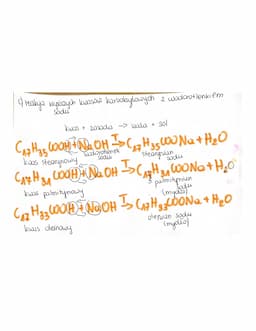 1) Reakcja wyższych kwasów karboksylowych z wodorotlenkiem
sodu
kwas + zasada → woda + sól
C17H35COOH + NaOH T→ C17H35COONa + H2O
kwas stearynowy wodorotlenek sodu stearynian sodu
C17H31COOH + NaOH T→ C17H31COONa + H2O
kwas palmitynowy palmitynian sodu (mydło)
C17H33COOH + NaOH T→ C17H33COONa + H2O
kwas oleinowy oleinian sodu
(mydło)